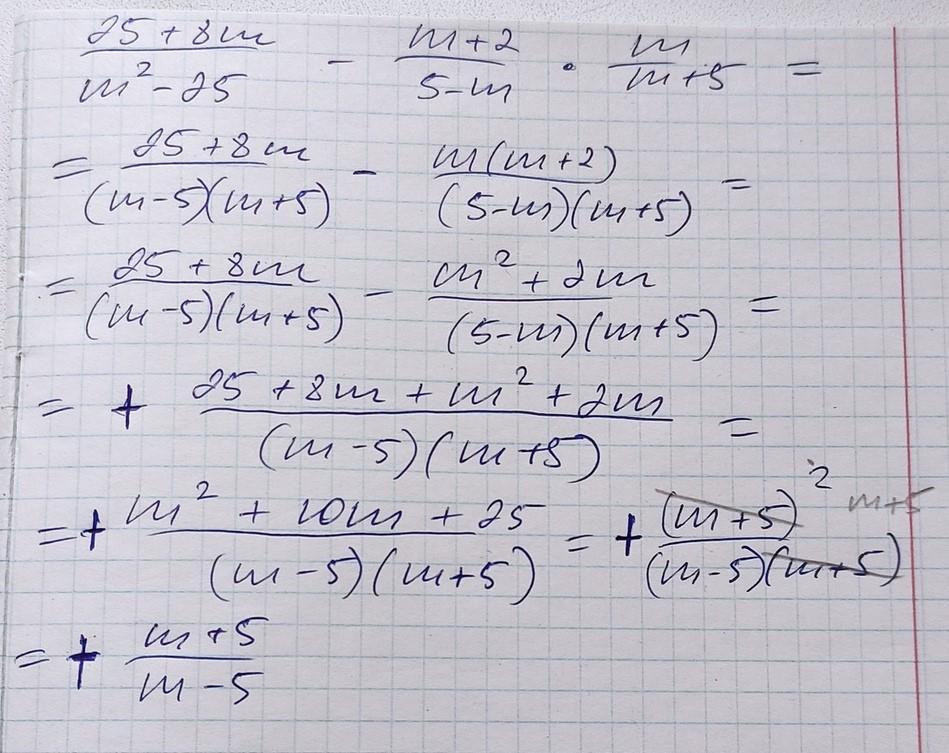 (25+8m)/(m²-25) - (m+2)/(5-m) · m/(m+5) =
= (25+8m)/((m-5)(m+5)) - (m(m+2))/((5-m)(m+5)) =
= (25+8m)/((m-5)(m+5)) - (m²+2m)/((5-m)(m+5)) =
= + (25+8m+m²+2m)/((m-5)(m+5)) =
= + (m²+10m+25)/((m-5)(m+5)) = + (m+5)² m+5/((m-5)(m+5))
= + (m+5)/(m-5)